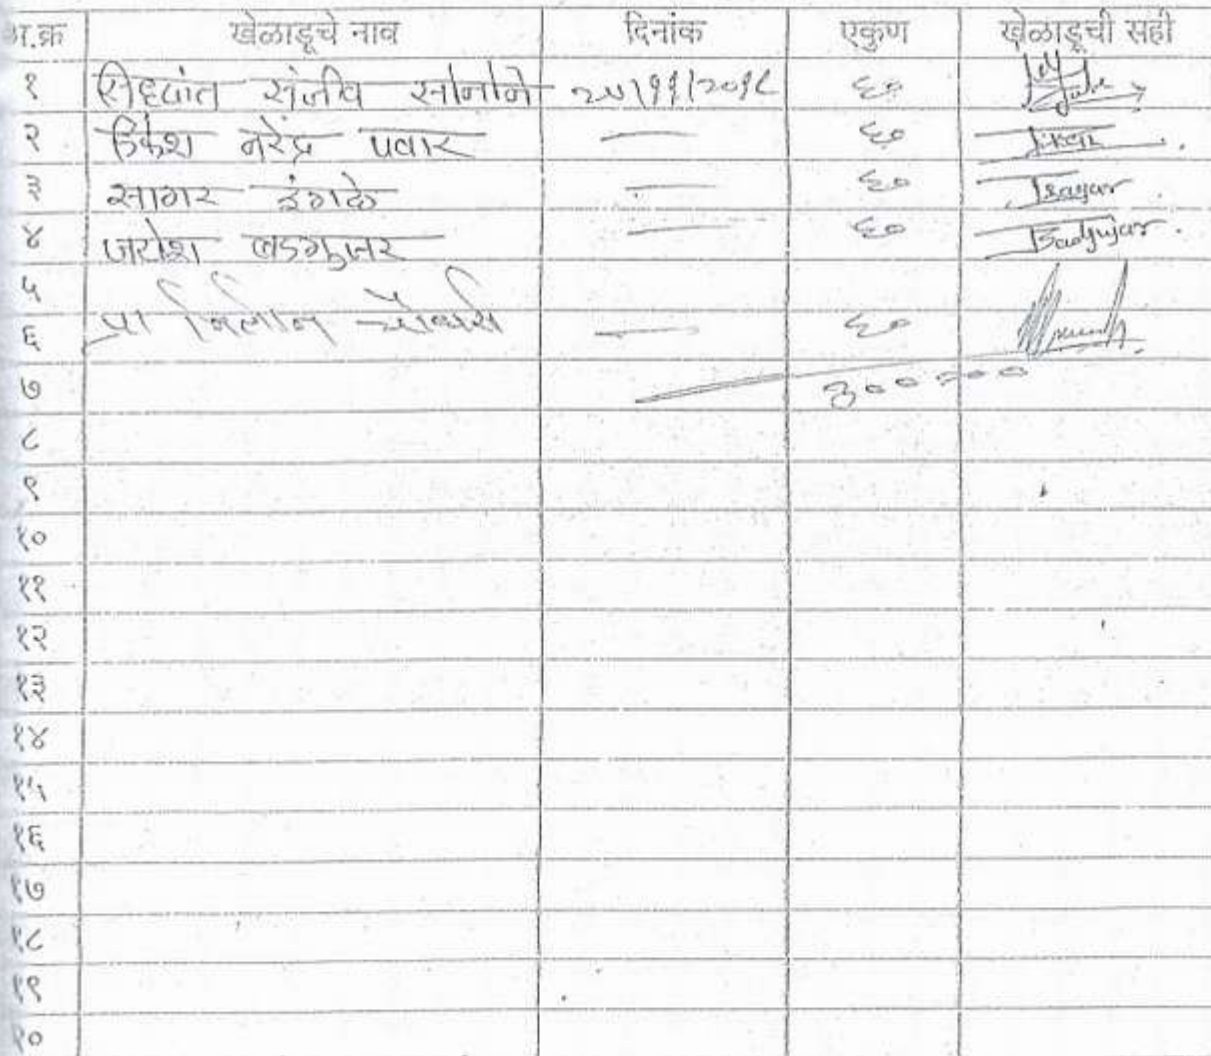 अ.क्र खेळाडूचे नाव दिनांक एकुण खेळाडूची सही
१ सिध्दांत संजीव सोनोने २५/११/२०१८ ६०
२ विकेश नरेंद्र पवार — ६०
३ सागर इंगळे — ६० Isagar
४ जयेश बडगुजर — ६० Badgujar.
५
६ प्रा — ६०
७ ३००=००
८
९
१०
११
१२
१३
१४
१५
१६
१७
१८
१९
२०